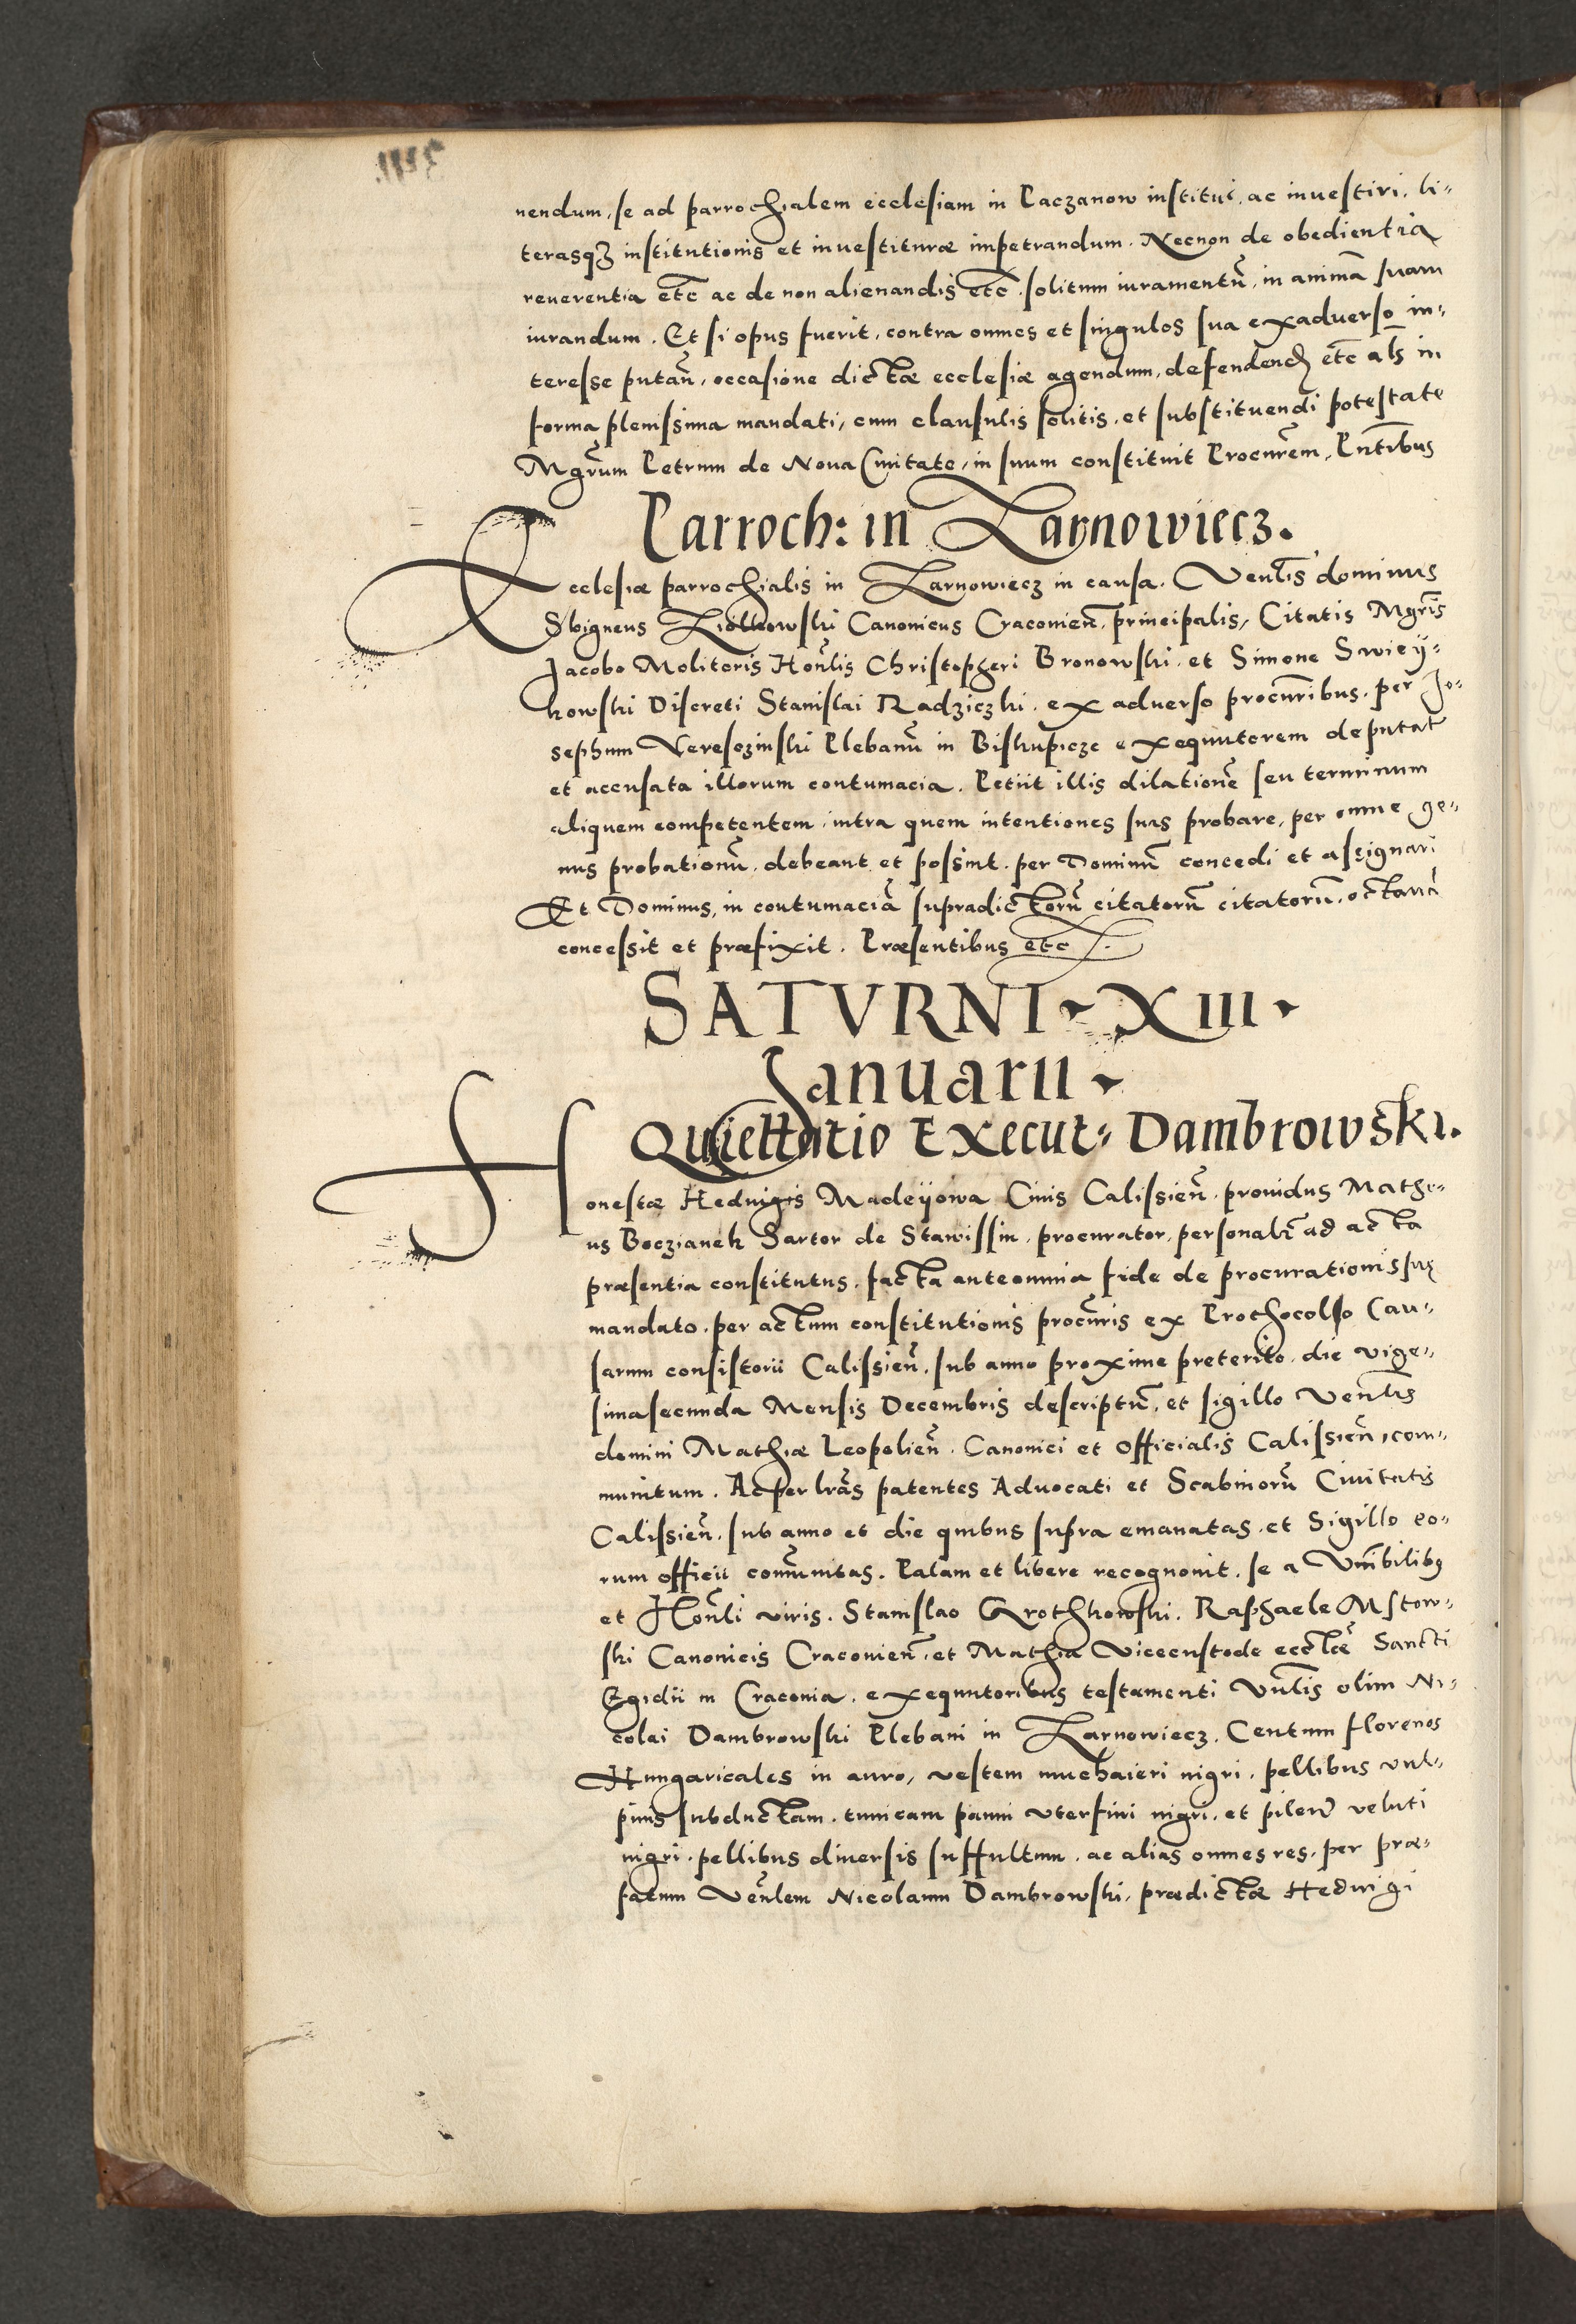 nendum, se ad parrochialem ecclesiam in Paczanow institui, ac inuestiri, li-
terasq3 institutionis et inuestituræ impetrandum. Necnon de obedientia
reuerentia etc̃ ac de non alienandis etc̃. solitum iuramentũ, in animã suam
iurandum. Et si opus fuerit, contra omnes et singulos sua exaduerso in-
teresse putan̄, occasione dictæ ecclesiæ agendum, defendend etc̃ als in
forma plenissima mandati, cum clausulis solitis, et substituendi potestate
Mgr̃um Petrum de Noua Ciuitate, in suum constituit Procur̃em, Pñtibus
Parroch: in Zarnowiecz.
Ecclesiæ parrochialis in Zarnowiecz in causa. Ven̄lis dominus
Sbigneus Ziolkowski Canonicus Cracouien̄, principalis, Citatis Mgr̃is
Jacobo Molitoris Hon̄lis Christopheri Bronowski, et Simone Swiey-
kowski Discreti Stanislai Radziczki, ex aduerso procur̃ibus, per Jo-
sephum Veresczinski Plebanũ in Biskupicze exequutorem deputat̃
et accusata illorum contumacia. Petiit illis dilationẽ seu terminum
aliquem competentem, intra quem intentiones suas probare, per omne ge-
nus probationũ, debeant et possint, per Dominũ concedi et assignari
Et Dominus, in contumaciã supradictorũ citatorũ citatorũ, octauã
concessit et præfixit. Præsentibus etc.
SATVRNI XIII
Januarii
Quiettatio Execut: Dambrowski.
Honestæ Heduigis Madeyowa Ciuis Calissien̄, prouidus Mathe-
us Boczianek Sartor de Stawissin, procurator, personalr̃ ad acta
præsentia constitutus, facta ante omnia fide de procurationis suę
mandato, per actum constitutionis procur̃is ex Prothocollo Cau-
sarum consistorii Calissien̄, sub anno proxime preterito, die vige-
sima secunda Mensis Decembris descriptũ, et sigillo Ven̄lis
domini Mathiæ Leopolien̄, Canonici et Officialis Calissien̄, com-
munitum. Ac per lr̃as patentes Aduocati et Scabinorũ Ciuitatis
Calissien̄, sub anno et die quibus supra emanatas, et Sigillo eo-
rum officii com̃unitas. Palam et libere recognouit, se a Vn̄ibilibus
et Hon̄li viris, Stanislao Grothkowski, Raphaele Mstow-
ski Canonicis Cracouien̄, et Mathia Vicecustode ecclæ̃ Sancti
Egidii in Cracouia, exequutoribus testamenti Vn̄lis olim Ni-
colai Dambrowski Plebani in Zarnowiecz, Centum florenos
Hungaricales in auro, vestem muchaieri nigri, pellibus vul-
pinis subductam, tunicam panni vterfini nigri, et pileũ veluti
nigri, pellibus diuersis suffultum, ac alias omnes res, per præ-
fatum Ven̄lem Nicolaum Dambrowski, prædictæ Heduigi